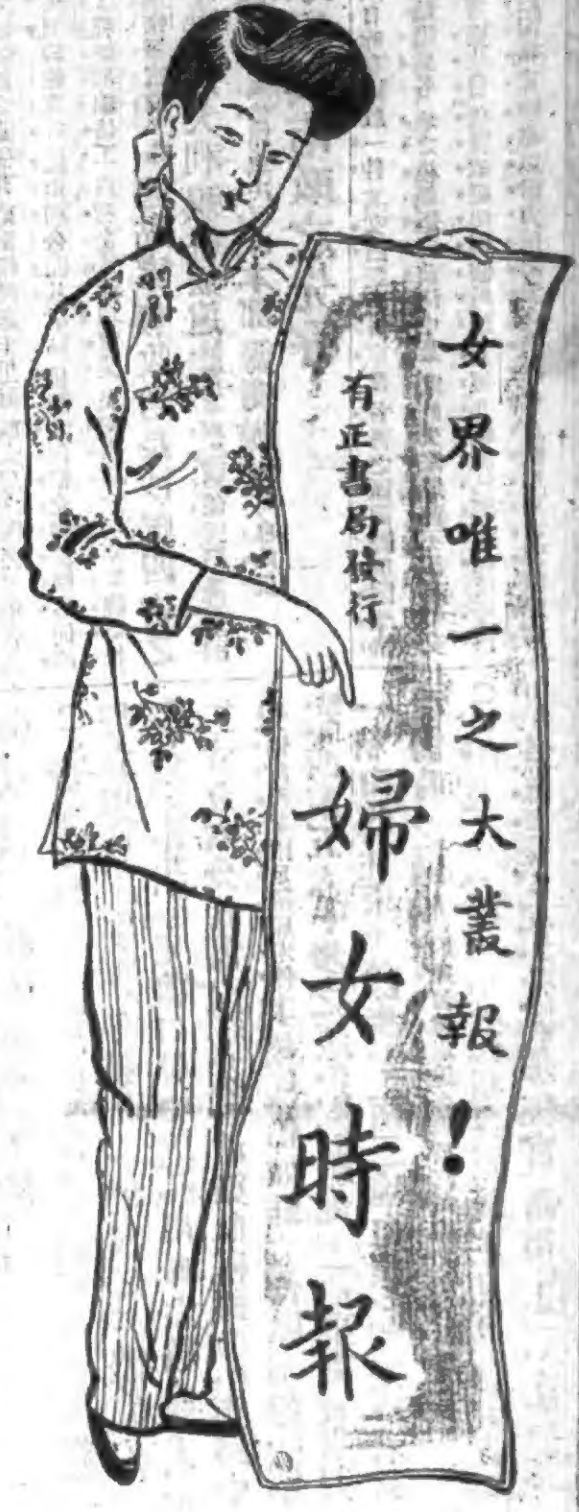 女界唯一之大叢報！
有正書局發行
婦女時報